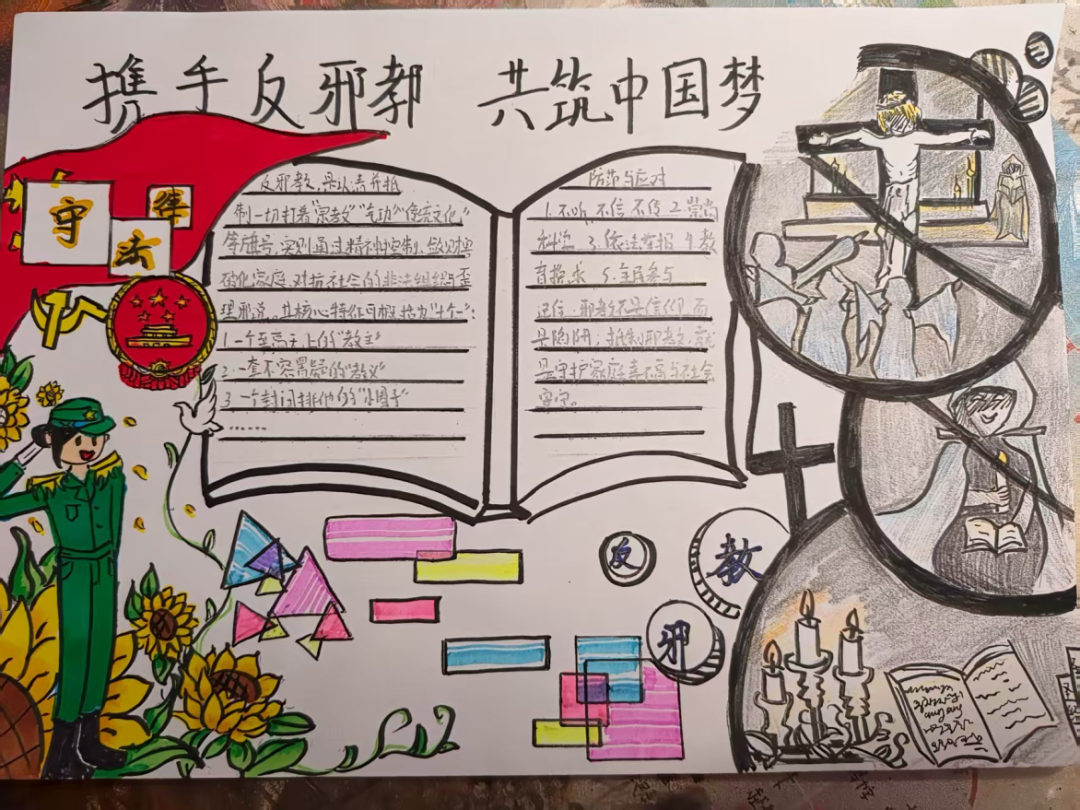 携手反邪教 共筑中国梦
守
律
法
反邪教,是认清并抵
制一切打着"宗教""气功""传统文化"
等旗号,实则通过精神控制、敛财
破坏家庭、对抗社会的非法组织与歪
理邪说。其核心特征可概括为"十个":
1.一个至高无上的"教主"
2.一套不容置疑的"教义"
3.一个封闭排他的"小圈子"
……
防范与应对
1.不听、不信、不传 2.崇尚
科学 3.依法举报 4.教
育 求 5.全民参与
记住:邪教不是信仰,而
是陷阱;抵制邪教,就
是守护家庭幸 与社会
安宁。
反
教
邪